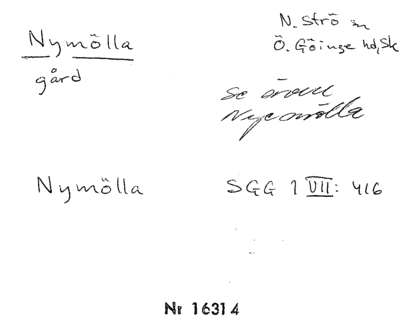 Nymölla
gård
N. Strö sn
Ö. Göinge hd, Sk
Se även
Nye mölla
Nymölla
SGG 1 VII: 416
Nr 16314